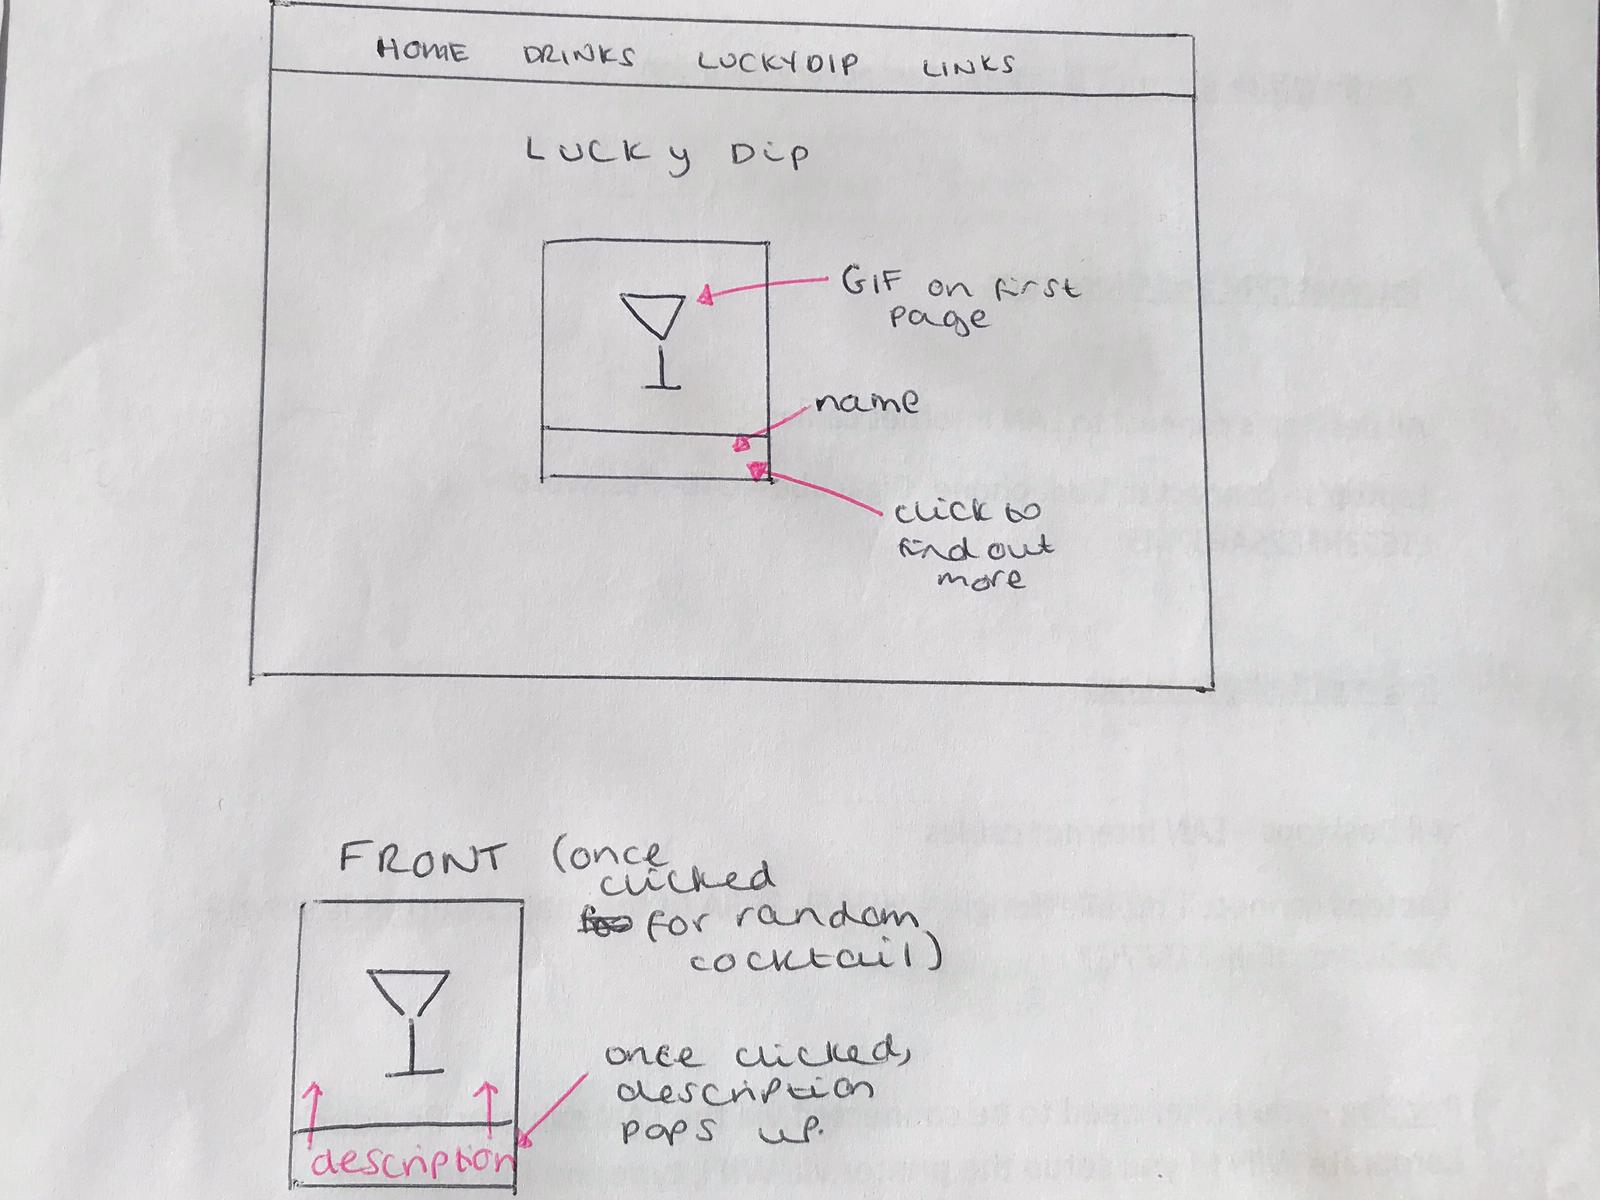 HOME DRINKS LUCKYDIP LINKS
LUCKY DIP
GIF on first
page
name
click to
find out
more
FRONT (once
clicked
for random
cocktail)
once clicked,
description
pops up.
description